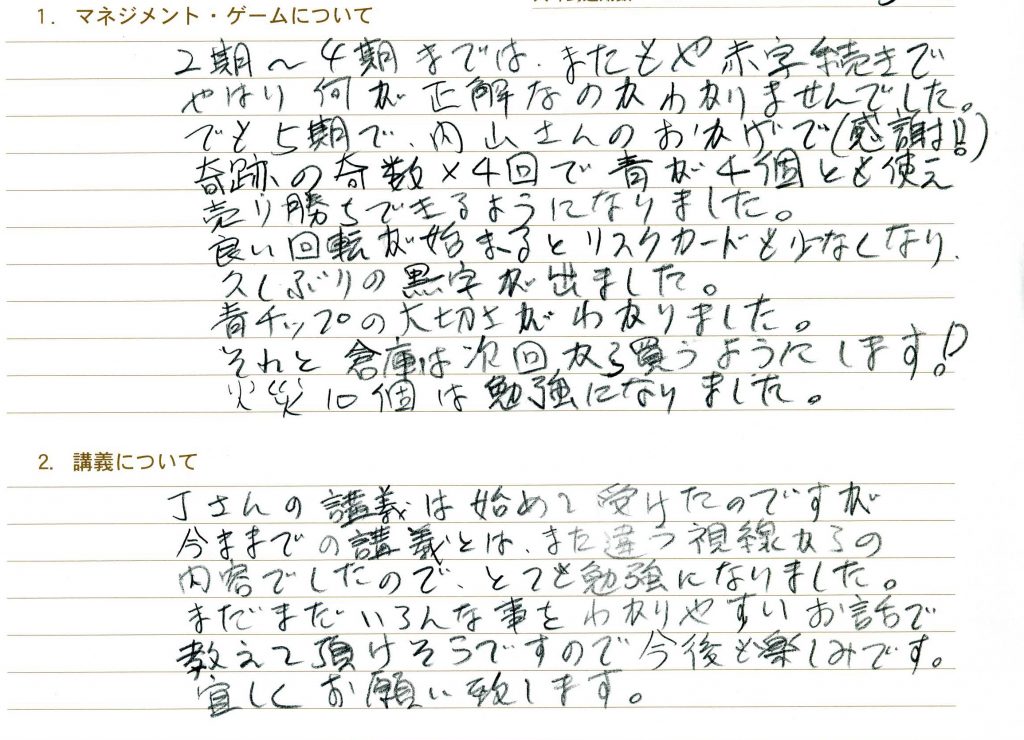 1. マネジメント・ゲームについて
2期〜4期までは、またもや赤字続きで
やはり何が正解なのかわかりませんでした。
でも5期で、内山さんのおかげで(感謝!!)
奇跡の奇数×4回で青が4個とも使え
売り勝ちできるようになりました。
良い回転が始まるとリスクカードも少なくなり、
久しぶりの黒字が出ました。
青チップの大切さがわかりました。
それと倉庫は次回から買うようにします!
火災10個は勉強になりました。
2. 講義について
Jさんの講義は始めて受けたのですが
今までの講義とは、また違う視線からの
内容でしたので、とても勉強になりました。
まだまだいろんな事をわかりやすいお話で
教えて頂けそうですので今後も楽しみです。
宜しくお願い致します。